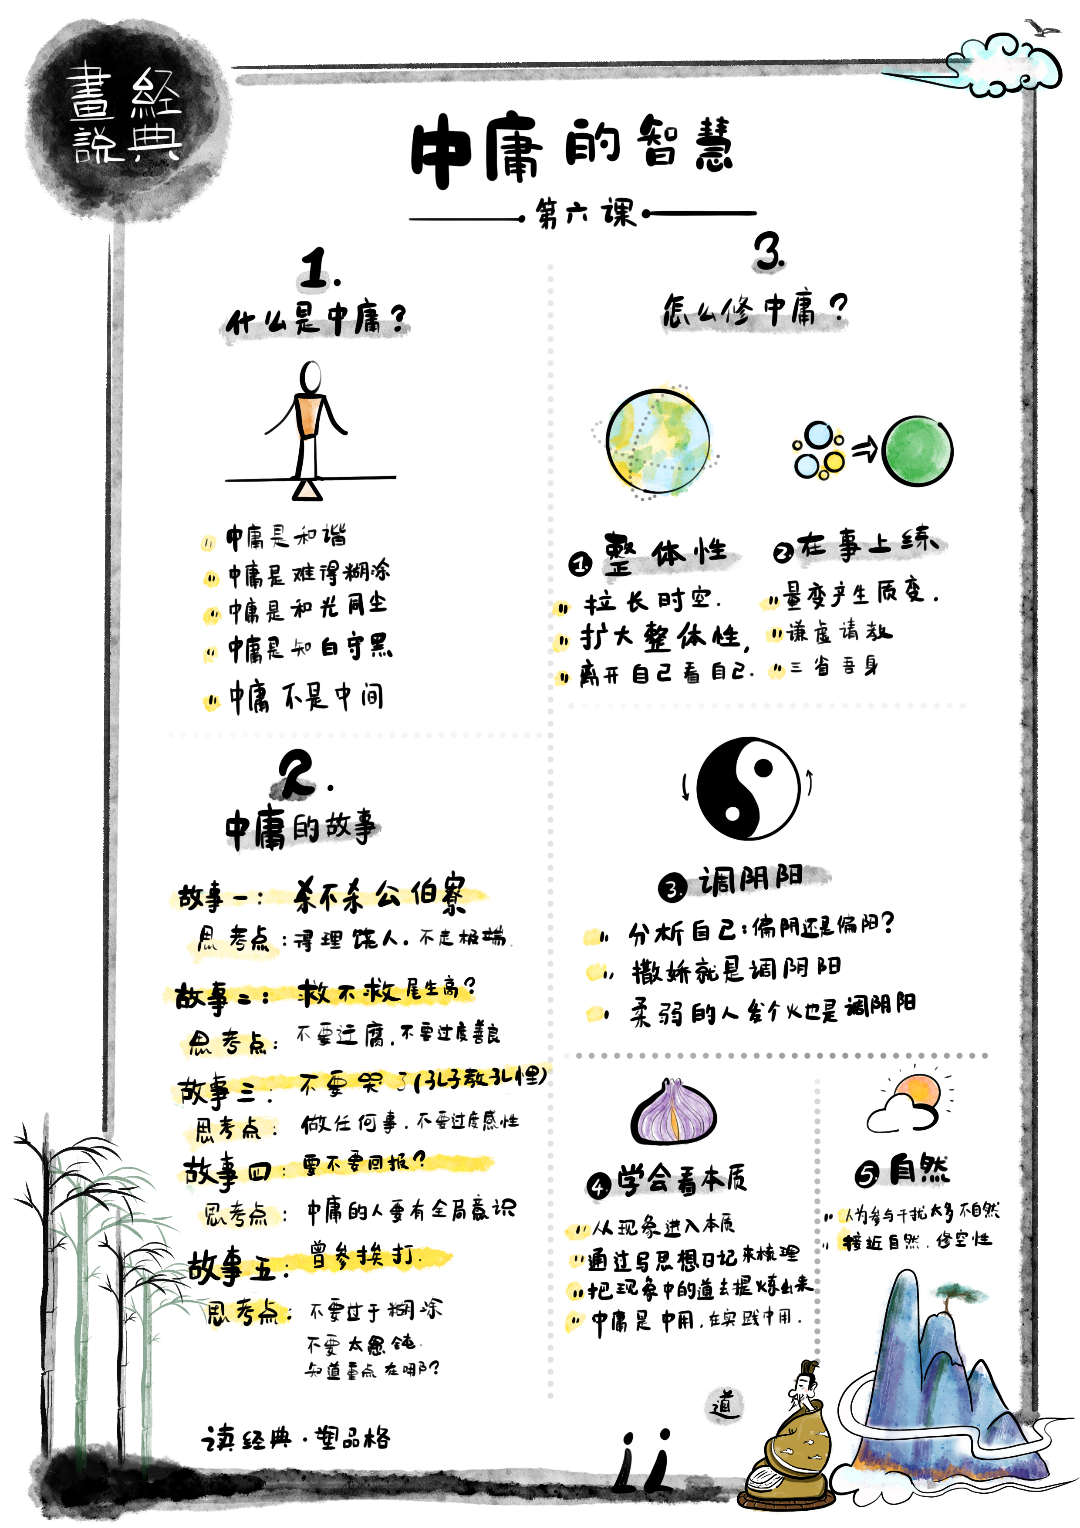 經典
畫説
中庸的智慧
第六课
1.
什么是中庸?
中庸是和谐
中庸是难得糊涂
中庸是和光同尘
中庸是知白守黑
中庸不是中间
2.
中庸的故事
故事一: 杀不杀公伯寮
思考点: 得理饶人,不走极端.
故事二: 救不救尾生高?
思考点: 不要迂腐,不要过度善良
故事三: 不要哭了(孔子教孔悝)
思考点: 做任何事,不要过度感性
故事四: 要不要回报?
思考点: 中庸的人要有全局意识
故事五: 曾参挨打.
思考点: 不要过于糊涂
不要太愚钝.
知道重点在哪?
读经典·塑品格
3.
怎么修中庸?
1 整体性
拉长时空.
扩大整体性,
离开自己看自己.
2 在事上练
量变产生质变.
谦虚请教
三省吾身
3. 调阴阳
分析自己:偏阴还是偏阳?
撒娇就是调阴阳
柔弱的人发个火也是调阴阳
4 学会看本质
从现象进入本质
通过写思想日记来梳理
把现象中的道去提炼出来
中庸是中用,在实践中用.
5. 自然
人为参与干扰太多不自然
接近自然,修空性
道